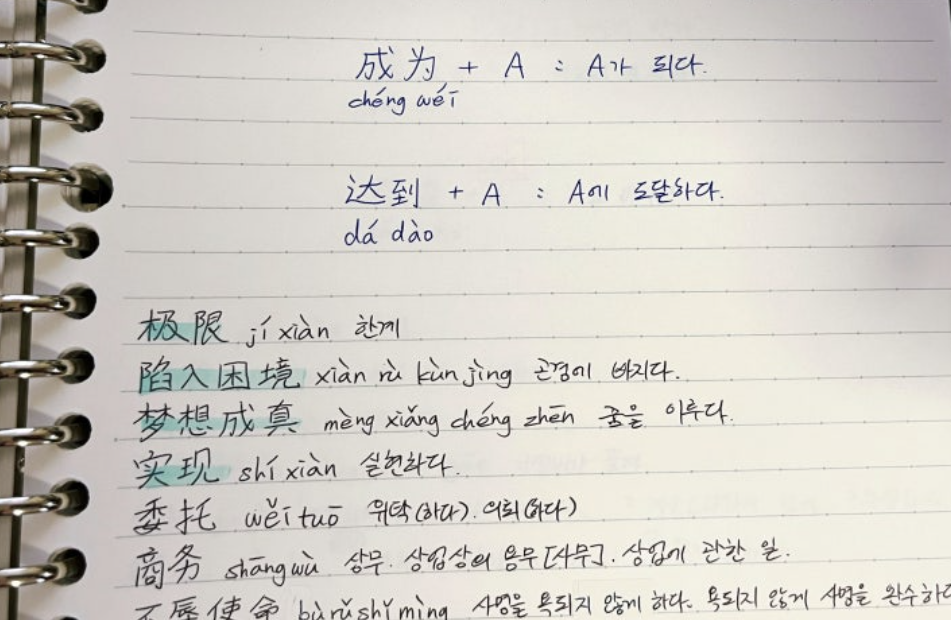 成为 + A : A가 되다.
chéng wéi
达到 + A : A에 도달하다.
dá dào
极限 jí xiàn 한계
陷入困境 xiàn rù kùn jìng 곤경에 빠지다.
梦想成真 mèng xiǎng chéng zhēn 꿈을 이루다.
实现 shí xiàn 실현하다.
委托 wěi tuō 위탁(하다). 의뢰(하다)
商务 shāng wù 상무. 상업상의 용무[사무]. 상업에 관한 일.
不辱使命 bù rǔ shǐ mìng 사명을 욕되지 않게 하다. 욕되지 않게 사명을 완수하다